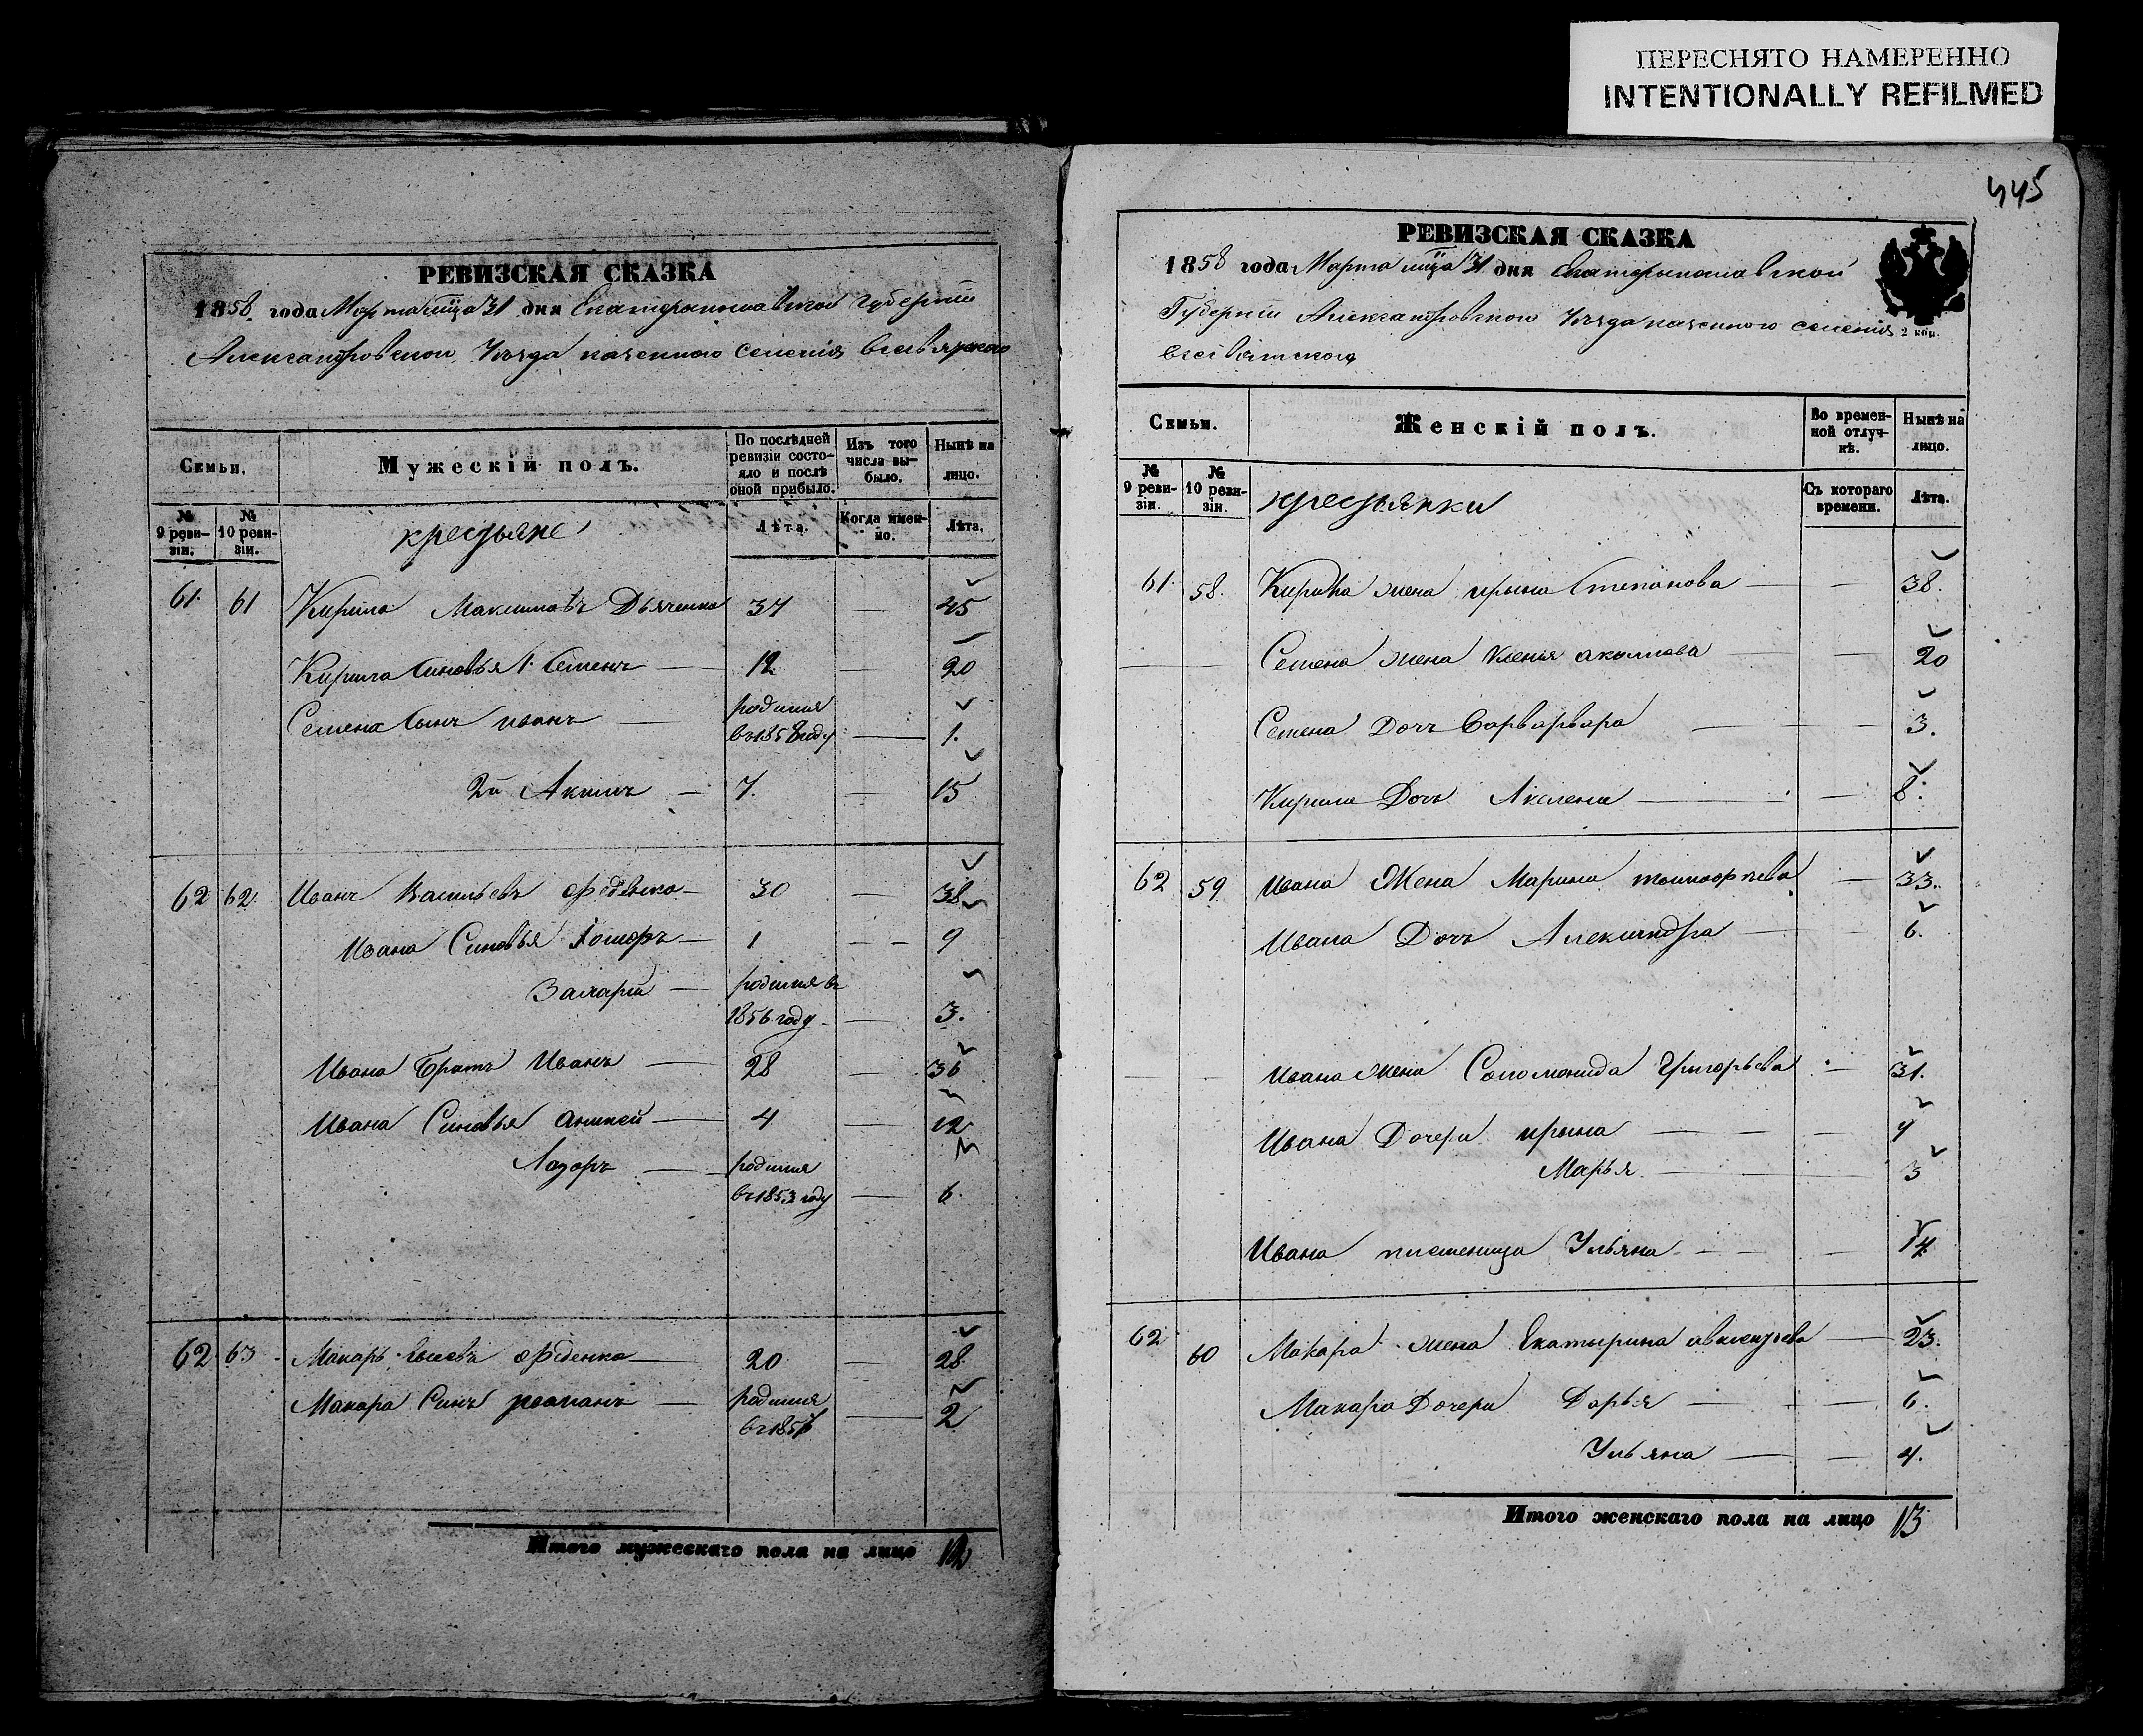 ПЕРЕСНЯТО НАМЕРЕННО
INTENTIONALLY REFILMED
РЕВИЗСКАЯ СКАЗКА
1858. года Марта мца 31 дня Екатеринославской губернии
Александровского Уезда казенного селения
Семьи.
Мужескій полъ.
По послѣдней ревизіи состояло и послѣ оной прибыло.
Изъ того числа выбыло.
Нынѣ на лицо.
№ 9 ревизіи.
№ 10 ревизіи.
крестьяне
Лѣта.
Когда именно.
Лѣта.
61. 61 Кирило Максимовъ Дьяченко 37 — 45
Кирила Синовья 1. Семенъ — 12 — 20
Семена Сынъ иванъ — родился
въ 1858 году — 1.
2й Акимъ — 7. — 15
62 62. Иванъ Васильевъ Феденко — 30 — 38
Ивана Синовья — 1 — — 9
Захарій — родился въ
1856 году — 3.
Ивана Братъ Иванъ — 28 — 36
Ивана Синовья Аникей — 4 — 12
Лазоръ — родился
въ 1853 году — 6.
62 63 Макаръ Феденко — 20 — 28
Макара Синъ романъ — родился
въ 1857 — 2
Итого мужескаго пола на лицо 12
445
РЕВИЗСКАЯ СКАЗКА
1858 года Марта мца 31 дня Екатеринославской
Губерніи Александровского Уезда казенного селения
2 коп.
Всесвятского
Семьи.
Женскій полъ.
Во временной отлучкѣ.
Нынѣ на лицо.
№ 9 ревизіи.
№ 10 ревизіи.
крестьянки
Съ котораго времени.
Лѣта.
61. 58. Кирила жена ирына Степанова — — 38.
Семена жена — — 20
Семена Дочъ Варварвара — — 3.
Кирила Дочъ — — 8.
62 59 Ивана Жена Марина — 33.
Ивана Дочъ Александра — — 6.
Ивана жена Соломонида Григорьева — 31.
Ивана Дочери ирына — — 9
Марья — 3
Ивана племеница Ульяна — — 14
62 60 Макара жена Екатырина — 23.
Макара Дочери Дарья — — 6.
Ульяна — — 4.
Итого женскаго пола на лицо 13